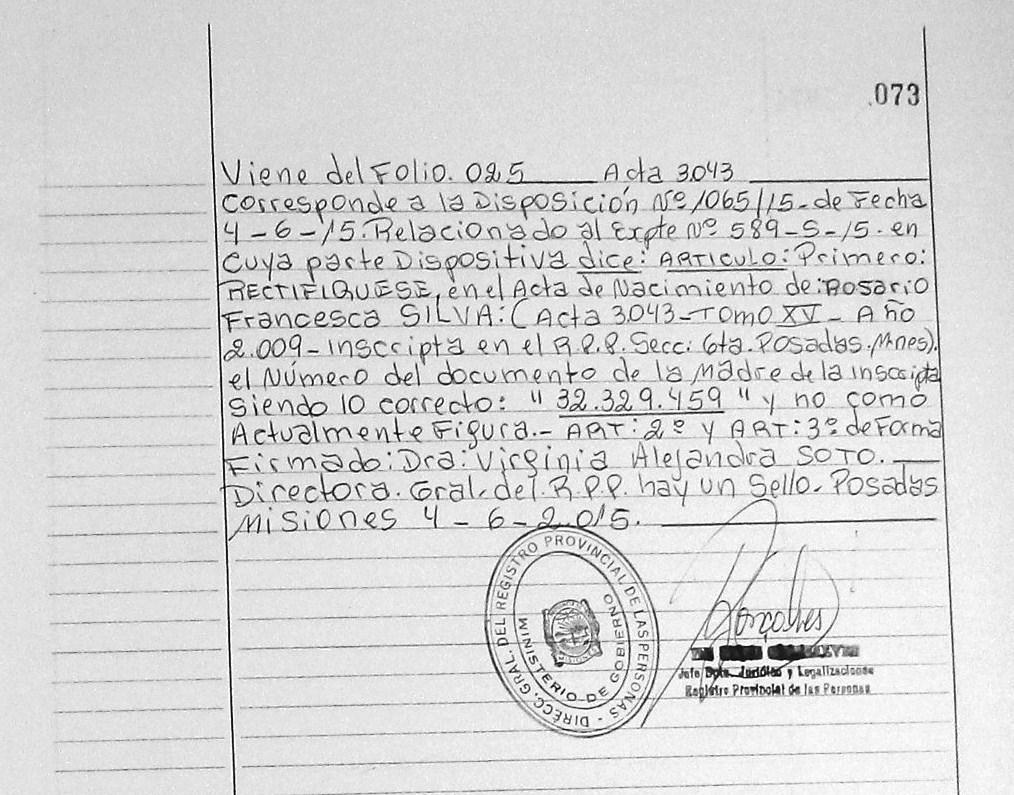 .073
Viene del Folio. 025 Acta 3043
Corresponde a la Disposición Nº 1065/15-de Fecha
4-6-15. Relacionado al Expte Nº 589-S-15. en
Cuya parte Dispositiva dice: ARTICULO: Primero:
RECTIFIQUESE, en el Acta de Nacimiento de: Rosario
Francesca SILVA: (Acta 3043-Tomo XV- Año
2.009-inscripta en el R.P.P. Secc: 6ta. Posadas. Mnes).
el Número del documento de la Madre de la inscripta
siendo lo correcto: "32.329.459" y no como
Actualmente Figura.- ART: 2º y ART: 3º de Forma
Firmado: Dra: Virginia Alejandra SOTO.
Directora. Gral. del. R.P.P. hay un Sello. Posadas
Misiones 4-6-2.015.
DIRECC. GRAL. DEL REGISTRO PROVINCIAL DE LAS PERSONAS -
MINISTERIO DE GOBIERNO
Jefe Dpto. Jurídico y Legalizaciones
Registro Provincial de las Personas